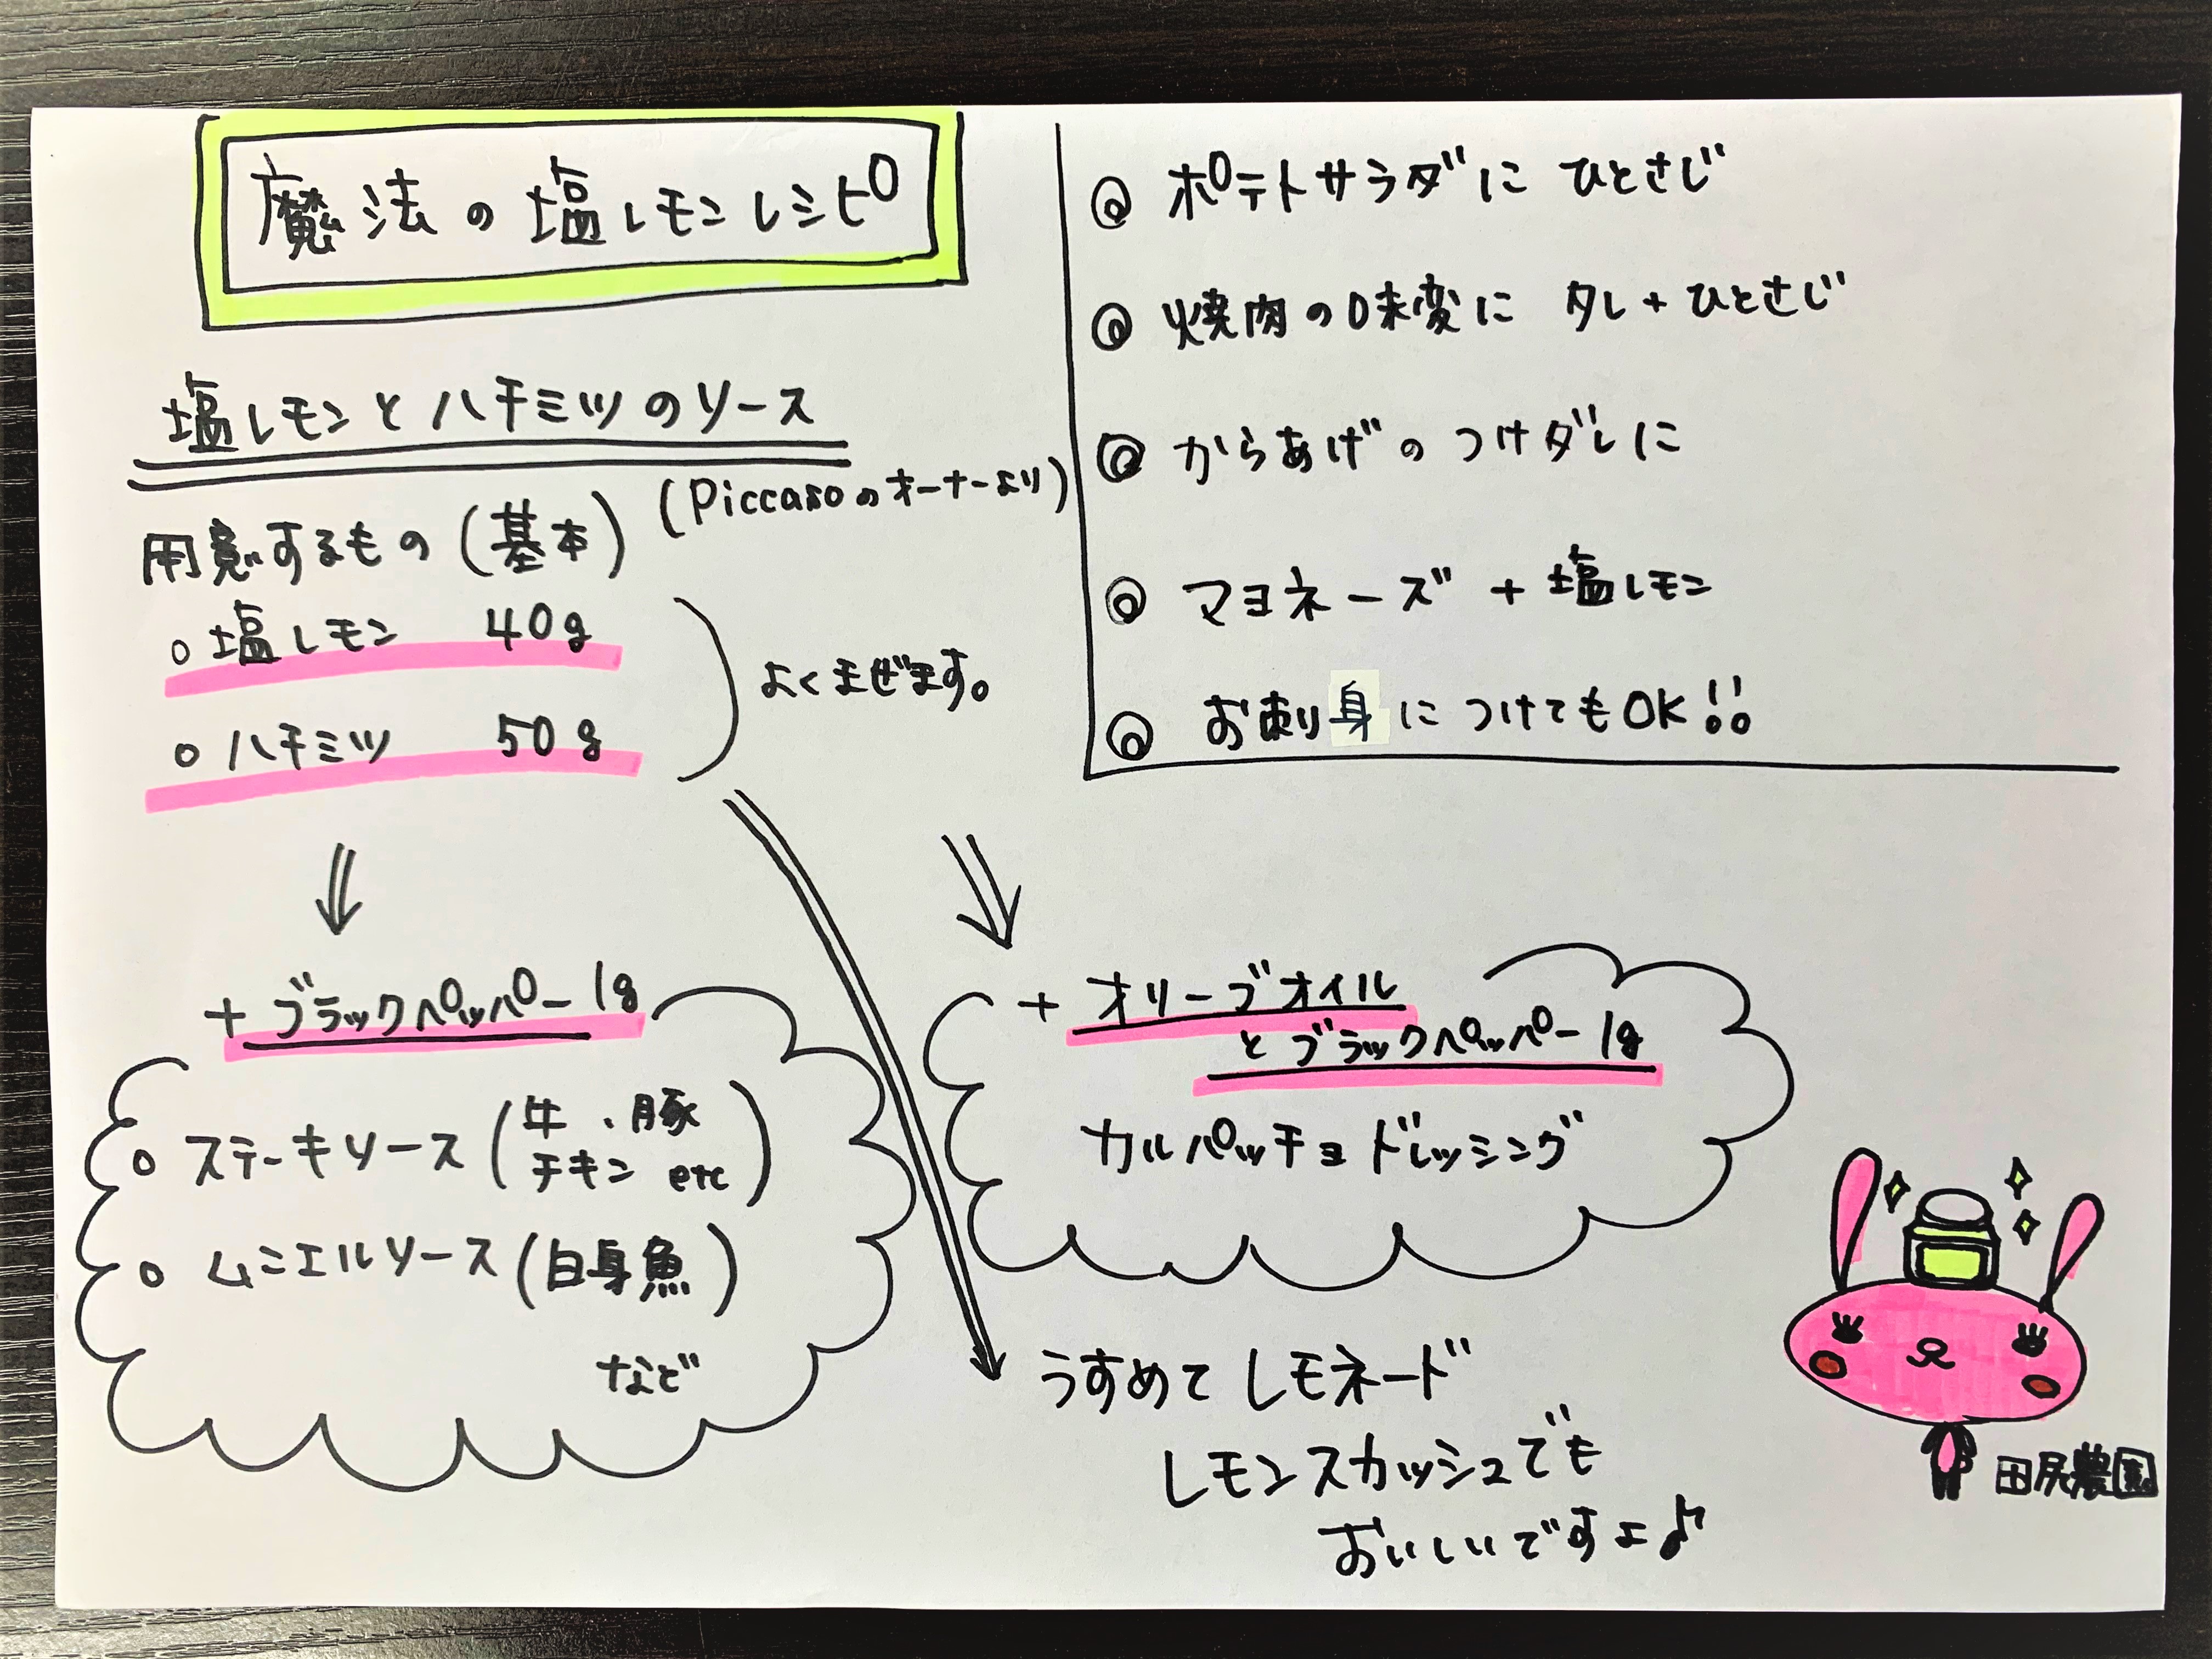 魔法の塩レモンレシピ
塩レモンとハチミツのソース
(Piccasoのオーナーより)
用意するもの(基本)
○塩レモン 40g
○ハチミツ 50g
よくまぜます。
+ブラックペッパー 1g
○ステーキソース(牛、豚
チキン etc)
○ムニエルソース(白身魚)
など
◎ポテトサラダに ひとさじ
◎焼肉の味変に タレ+ひとさじ
◎からあげのつけダレに
◎マヨネーズ+塩レモン
◎お刺身につけてもOK!!
+オリーブオイル
とブラックペッパー 1g
カルパッチョドレッシング
うすめてレモネード
レモンスカッシュでも
おいしいですよ♪
田尻農園